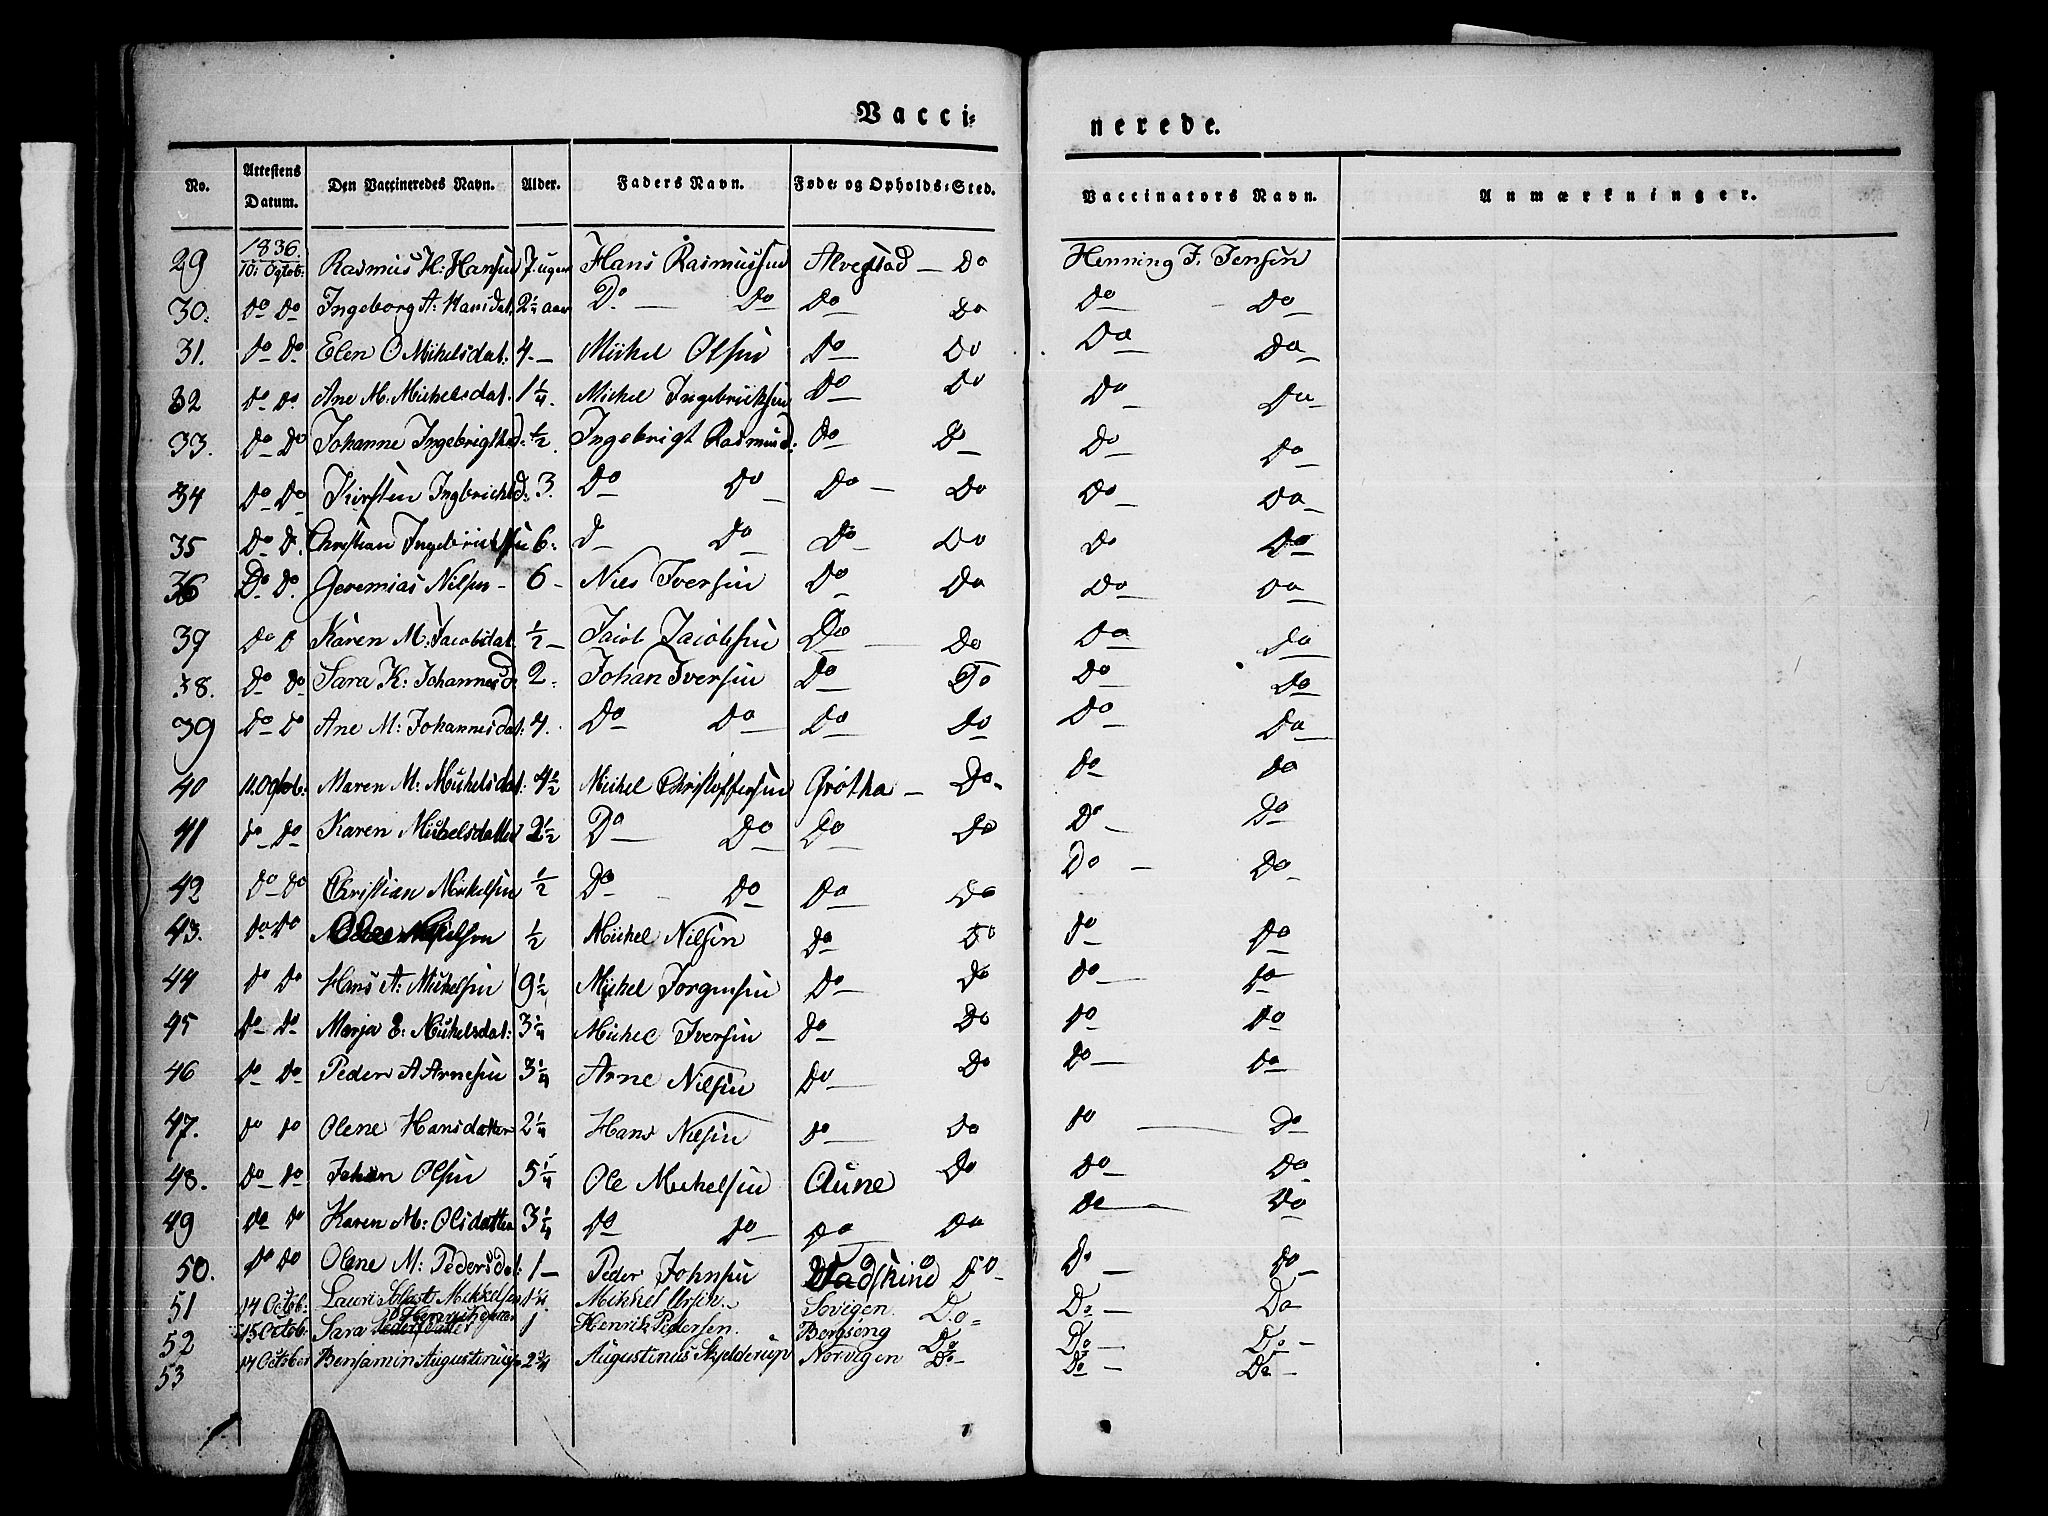 Vacci- nerede.
No. | Attestens Datum. | Den Vaccineredes Navn. | Alder. | Faders Navn. | Føde- og Opholds-Sted. | Vaccinators Navn. | Anmærkninger.
1836.
29 | 10: Ogtob: | Rasmus H: Hansen | 7 uger | Hans Rasmussen | Alvestad — Do | Henning F. Jensen
30: | Do Do | Ingeborg A: Hansdat. | 2 1/4 aar | Do — Do | Do Do | Do — Do
31. | Do Do | Elen O Mikelsdat: | 4 — | Michel Olsen | Do Do | Do Do
32 | Do Do | Ane M. Michelsdat. | 1 1/4. | Michel Ingebricktsen | Do Do | Do Do
33. | Do Do | Johanne Ingebrigtsd: | 1/2. | Ingebrigt Rasmuss: | Do Do | Do Do
34 | Do Do | Kirsten Ingbrichtsd: | 3. | Do Do | Do — Do | Do Do
35 | Do D. | Christian Ingebrictsen | 6: | D Do | Do Do | Do Do
36 | Do Do. | Geremias Nilsen — | 6 — | Niels Iversen | Do Do | Do Do
37 | Do D | Karen M: Jacobsdat. | 1/2 — | Jacob Jacobsen | Do Do | Do Do
38. | Do Do | Sara K: Johannesd: | 2. | Johan Iversen | Do Do | Do Do
39 | Do Do | Ane M: Johannesdat: | 4. | Do Do | Do Do | Do Do
40 | 11. Ogtob: | Maren M: Michelsdat: | 4 1/2 | Michel Christoffersen | Grøtha — Do | Do Do
41 | Do Do | Karen Michelsdatter | 2 1/2 | Do Do | Do Do | Do Do
42 | Do Do | Christian Mikelsen | 1/2 | Do Do | Do Do | Do — Do
43. | Do Do | 1/2 | Michel Nilsen | Do Do | Do Do
44 | Do Do | Hans A: Michelsen | 9 1/2 | Michel Jørgensen | Do Do | Do Do
45 | Do Do | Marja E: Michelsdat: | 3 1/4 | Michel Iversen | Do Do | Do Do
46 | Do Do | Peder A Arnesen | 3 1/4 | Arne Nilsen | Do Do | Do Do
47. | Do Do | Olene Hansdatter | 2 1/4 | Hans Nilsen | Do Do | Do Do
48. | Do Do | Johan Olsen | 5 1/4 | Ole Mechelsen | Aune Do | Do Do
49 | Do Do | Karen M: Olsdatter | 3 1/4 | Do Do | Do Do | Do Do
50. | Do Do | Olene M: Pedersdat: | 1 — | Peder Johnsen | Do | Do Do
51 | 14 Octob: | Mikkelsen | 1 1/4 | Mikkel | Sovigen. Do | Do — Do
52 | 15 Octob. | Sara | 1 | Henrik Pedersen. | Bergseng Do | Do — Do —
53 | 14 October | Benjamin | 2 3/4 | Augustinus Skjelderup | Norvigen Do — | Do — Do —